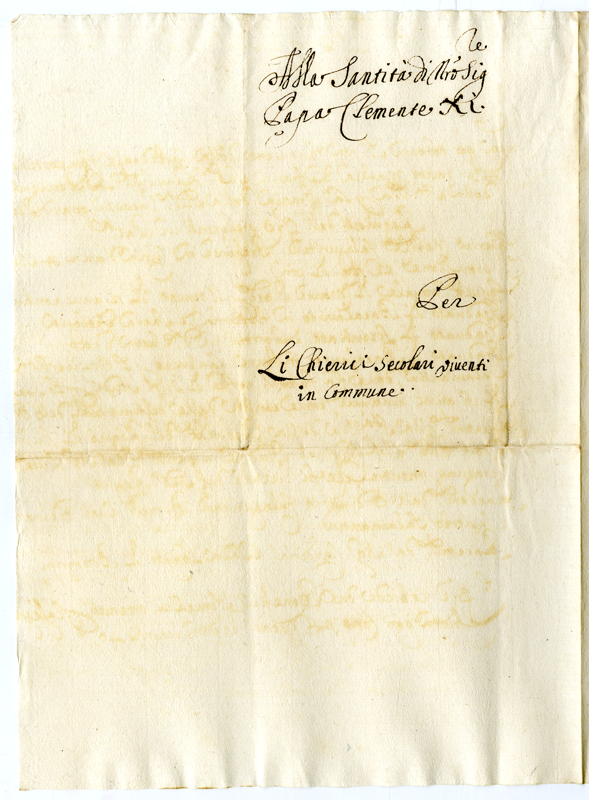 Alla Santità di Nro Sig.re
Papa Clemente XI.
Per
Li Chierici Secolari viventi
in Commune.